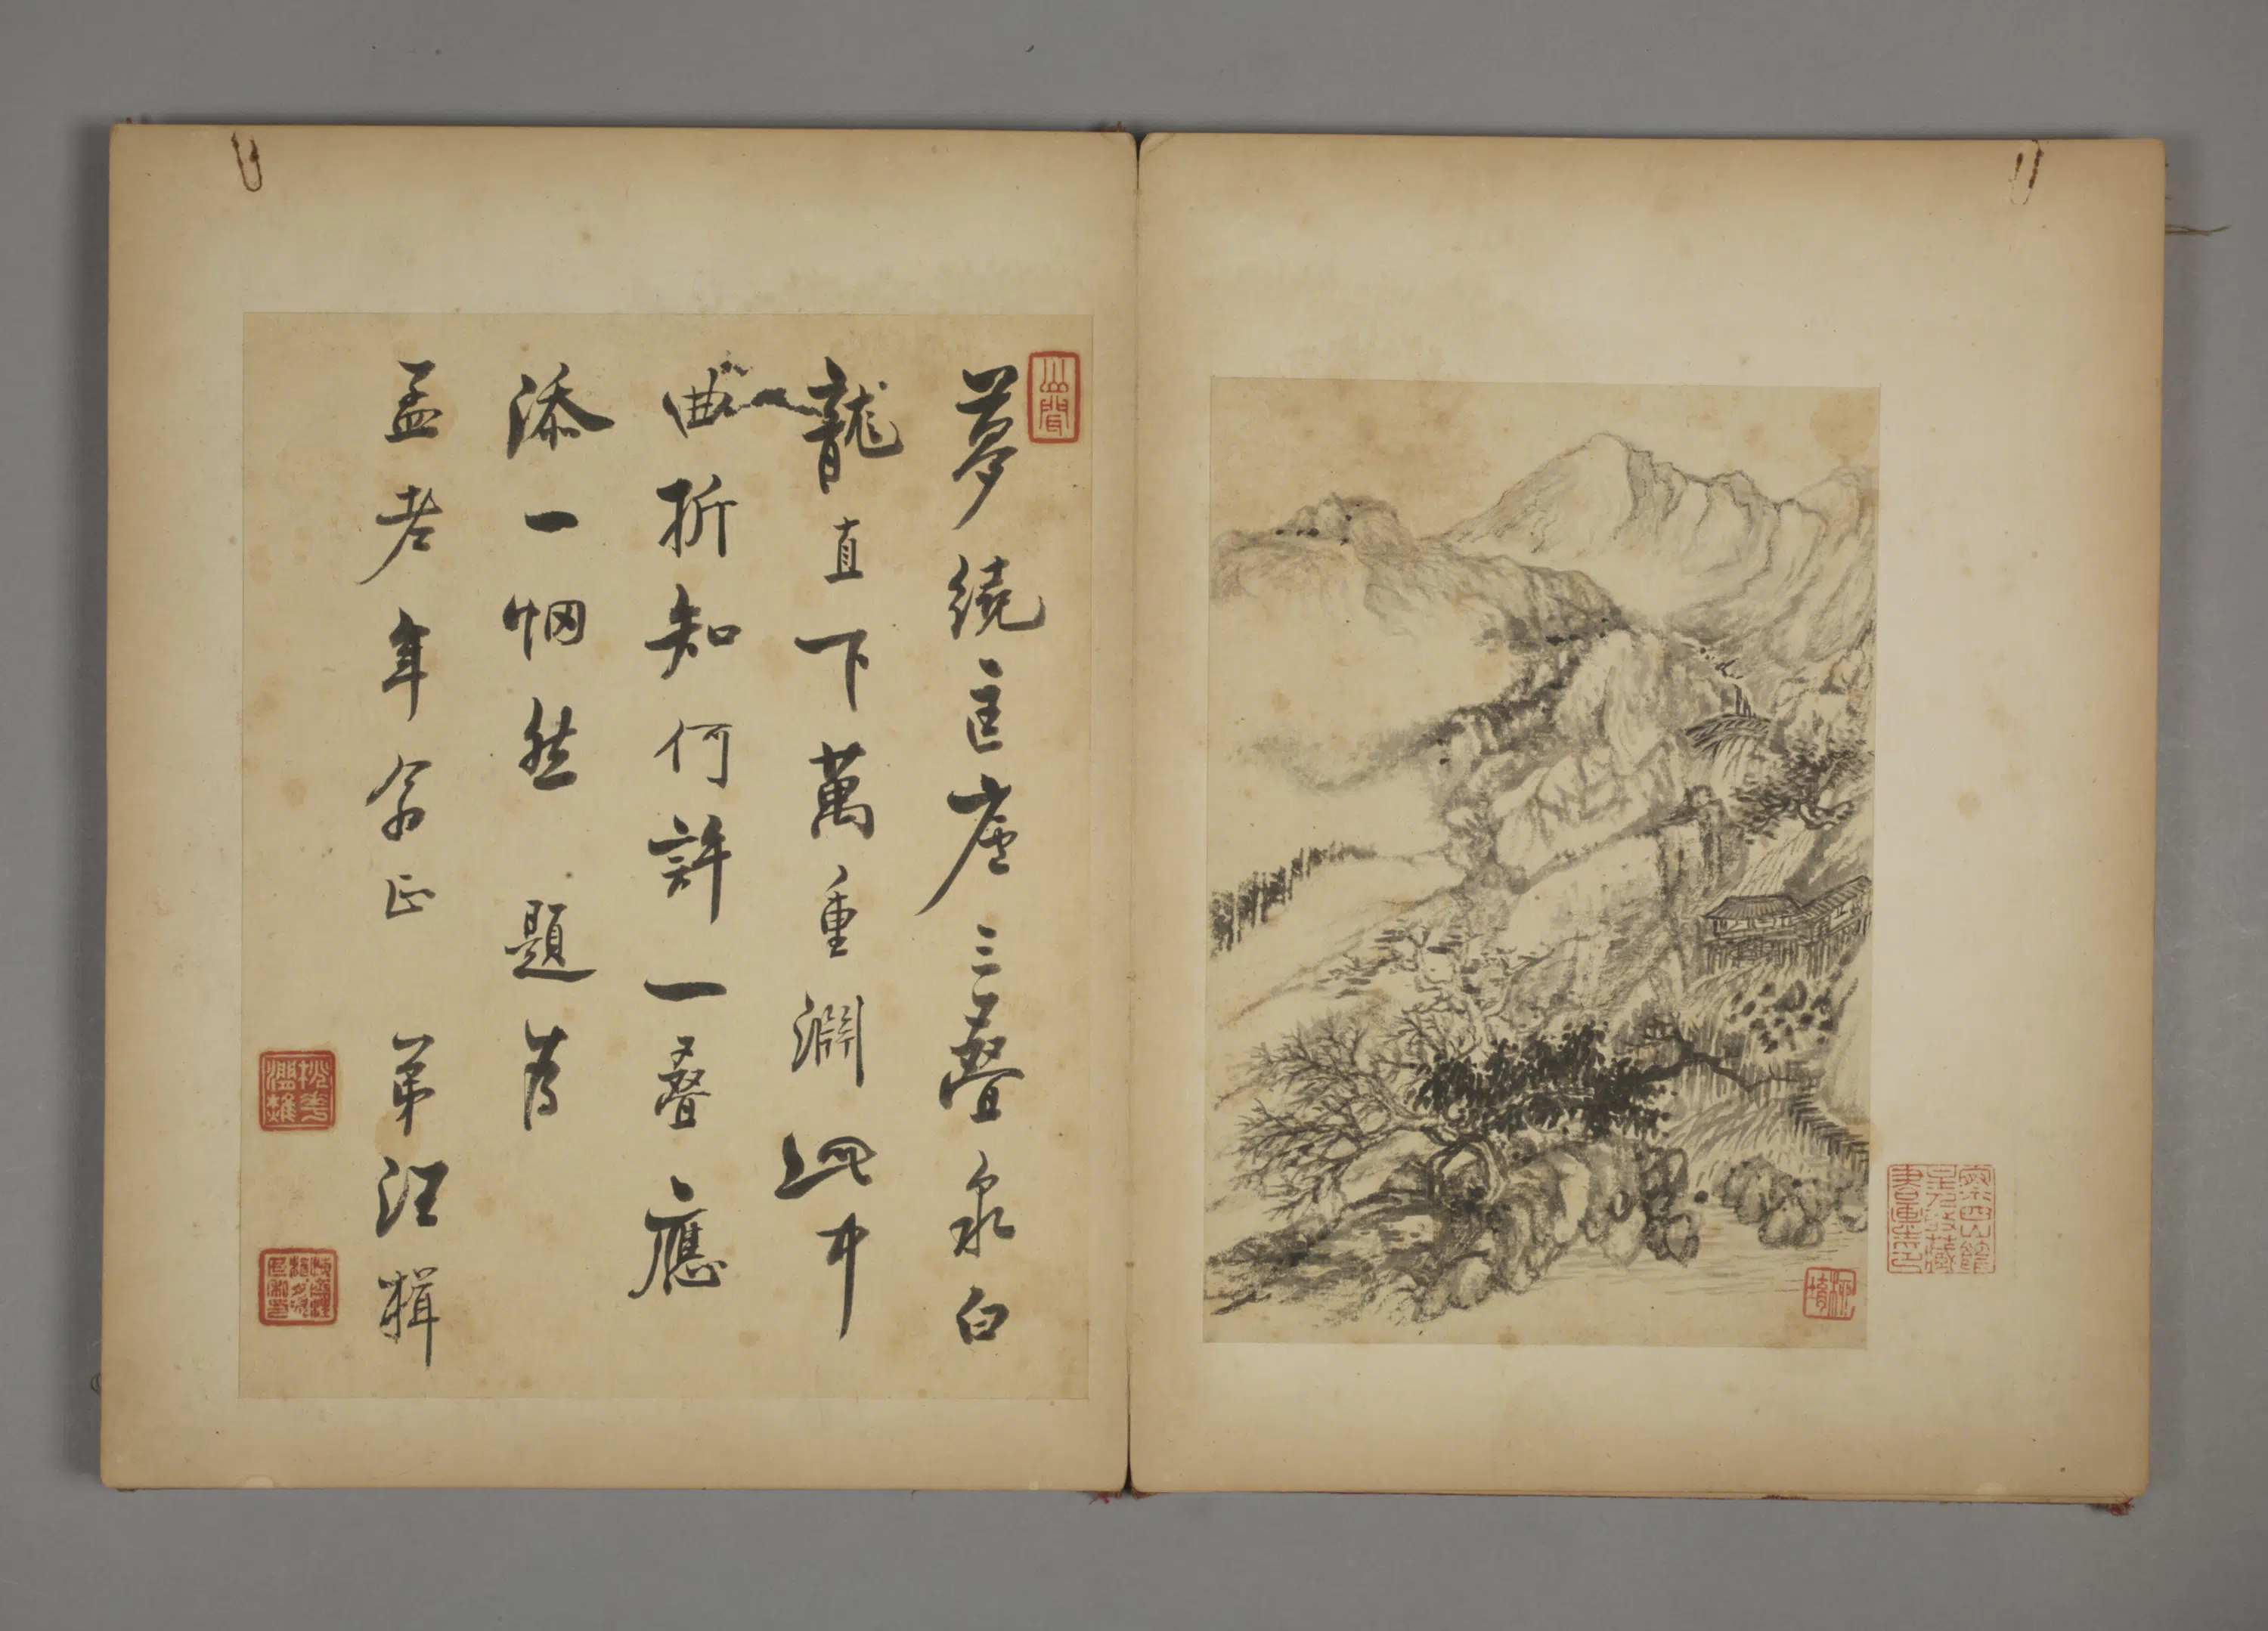 夢繞匡廬三疊泉白
龍直下萬重淵此中
曲折知何許一疊應
添一惘然 題為
孟老年翁正 弟汪楫